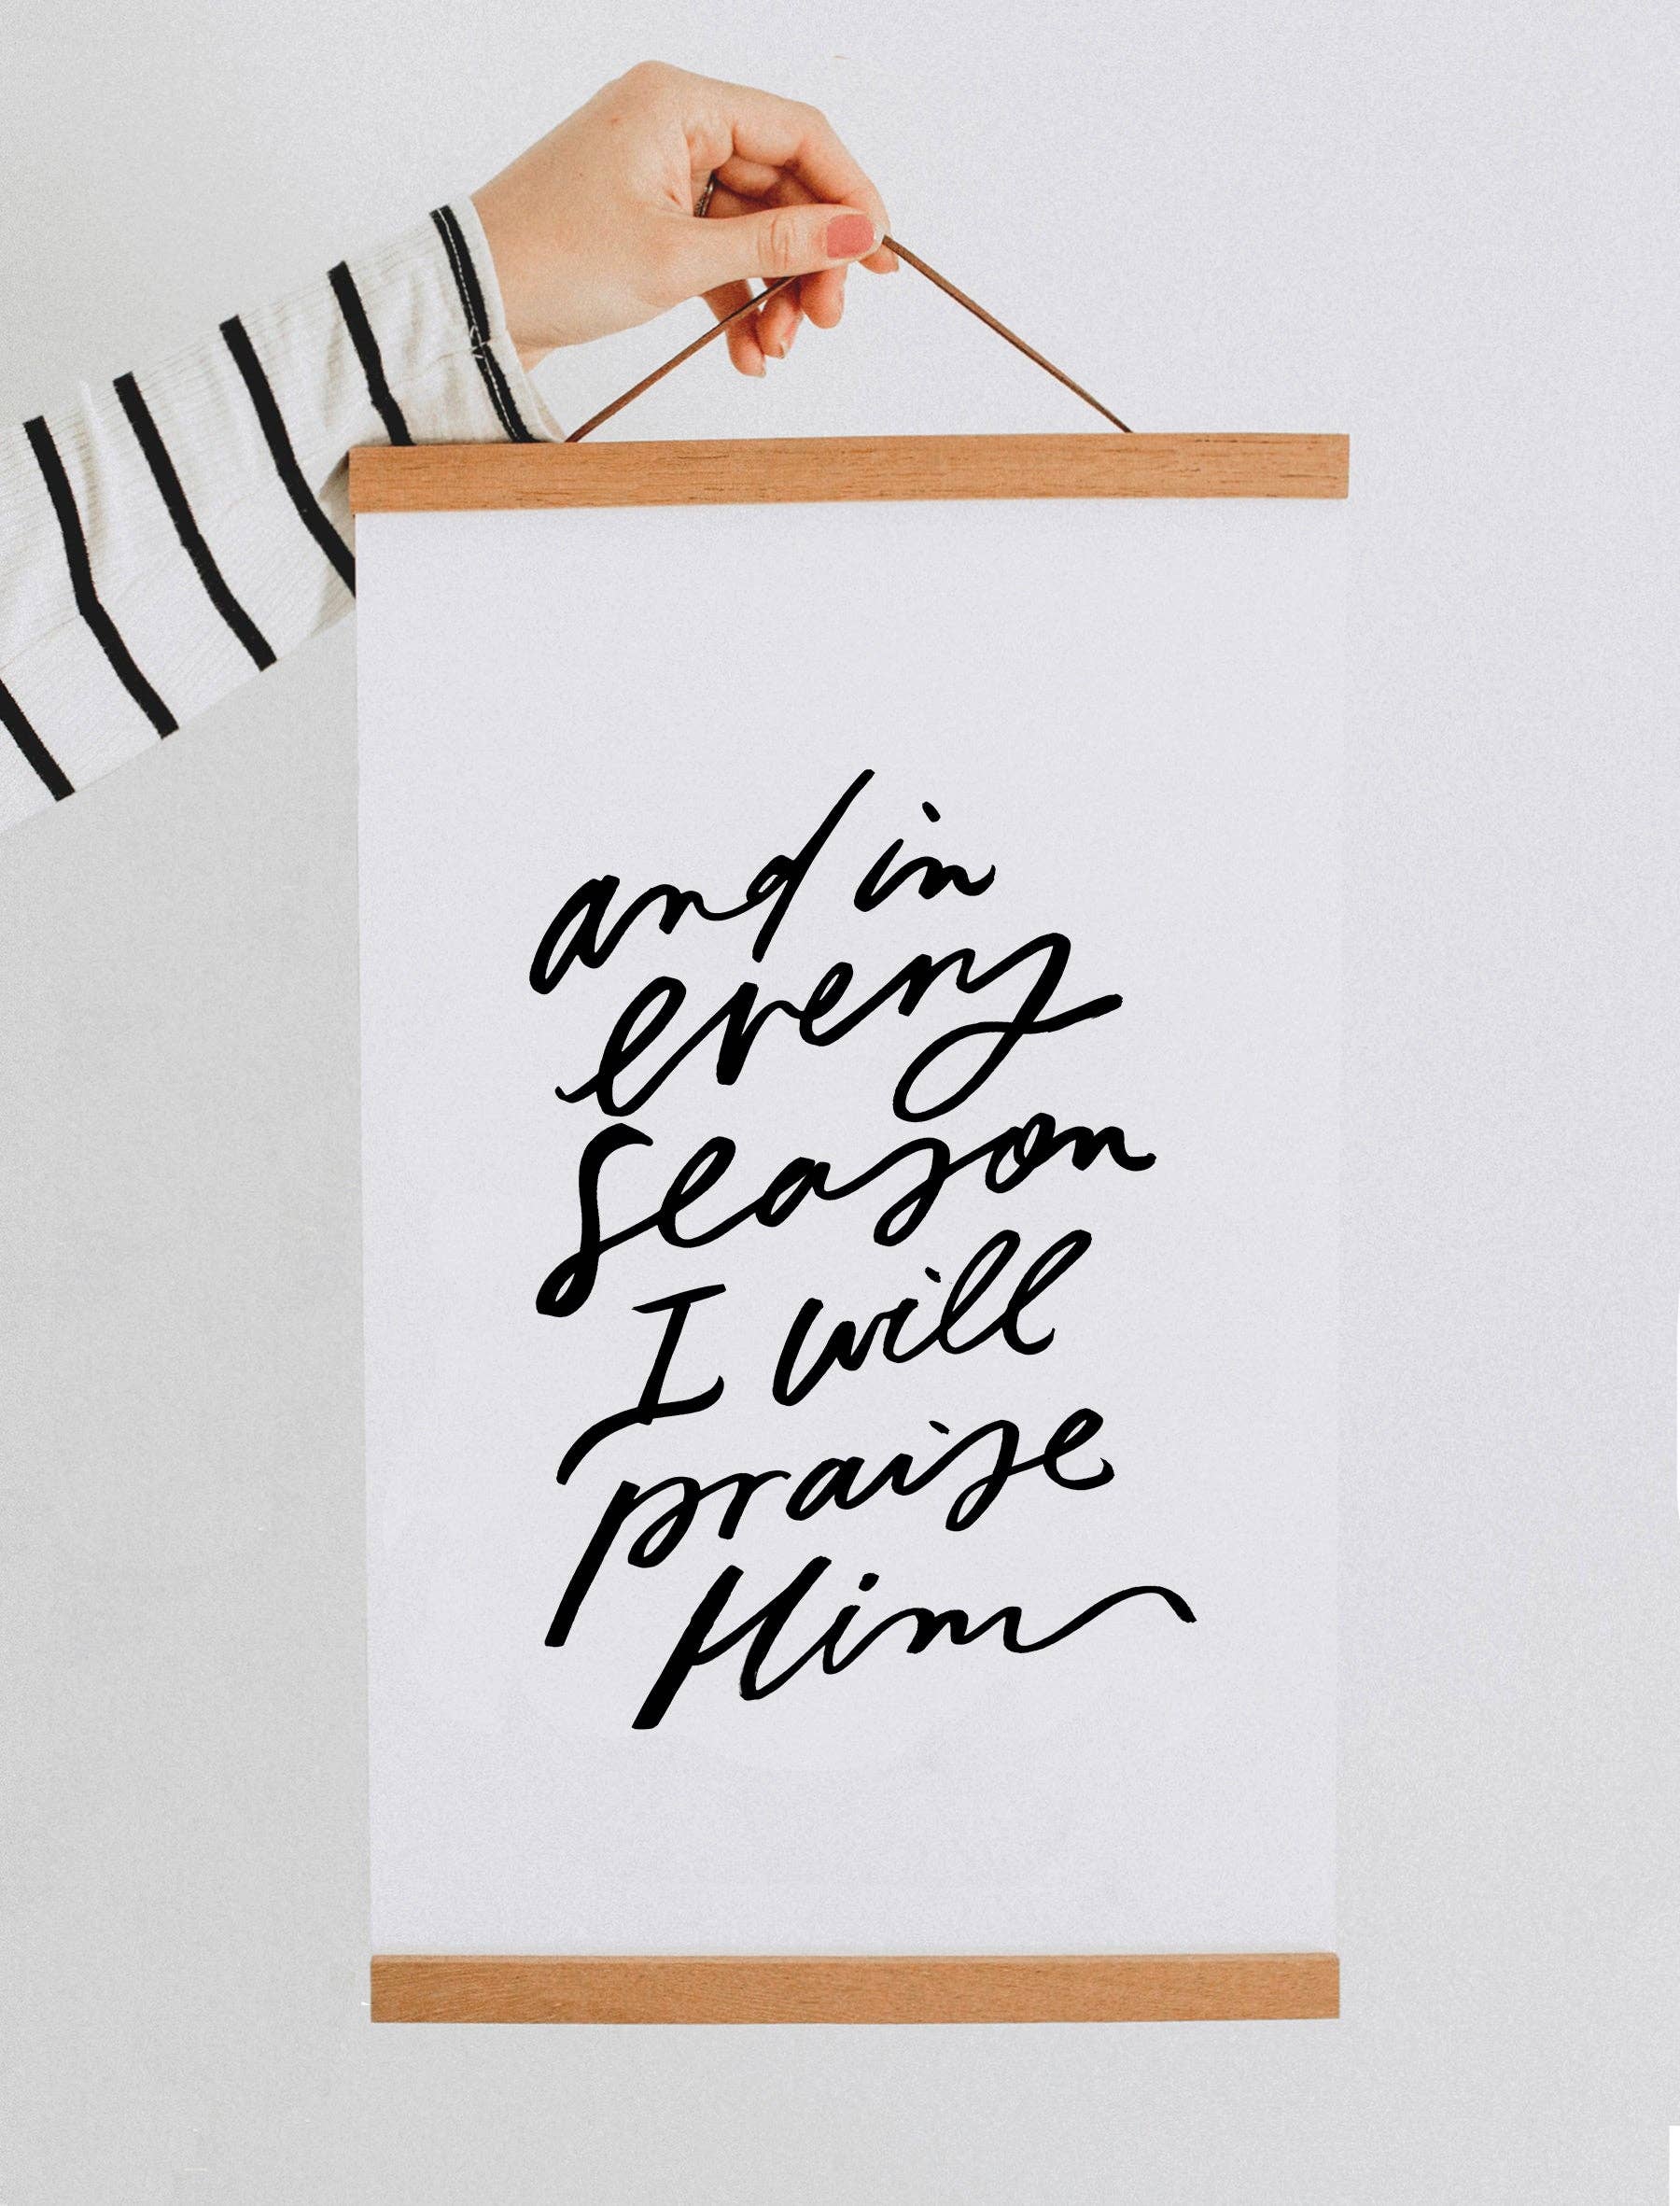 and in
every
season
I will
praise
Him